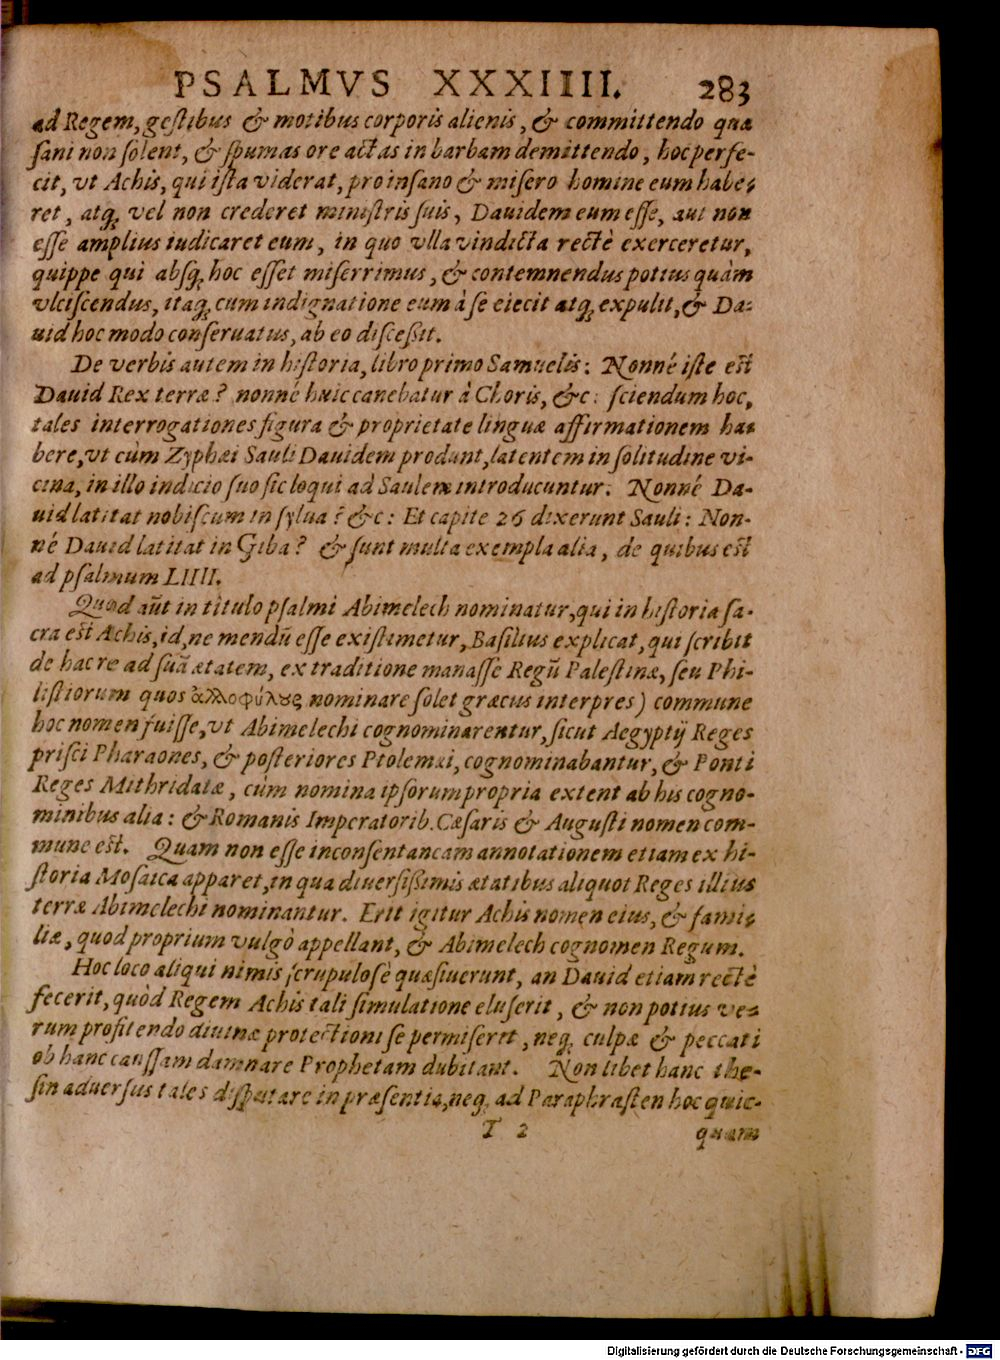 PSALMVS XXXIIII. 283
ad Regem, gestibus & motibus corporis alienis, & committendo quæ
sani non solent, & spumas ore actas in barbam demittendo, hoc perfe-
cit, vt Achis, qui ista viderat, pro insano & misero homine eum habe-
ret, atq; vel non crederet ministris suis, Dauidem eum esse, aut non
esse amplius iudicaret eum, in quo vlla vindicta rectè exerceretur,
quippe qui absq; hoc esset miserrimus, & contemnendus potius quàm
vlciscendus, itaq; cum indignatione eum à se eiecit atq; expulit, & Da-
uid hoc modo conseruatus, ab eo discessit.
De verbis autem in historia, libro primo Samuelis: Nonné iste est
Dauid Rex terræ? nonné huic canebatur à Choris, &c: sciendum hoc,
tales interrogationes figura & proprietate linguæ affirmationem ha-
bere, vt cùm Zyphæi Sauli Dauidem produnt, latentem in solitudine vi-
cina, in illo indicio suo sic loqui ad Saulem introducuntur. Nonné Da-
uid latitat nobiscum in sylua? &c: Et capite 26 dixerunt Sauli: Non-
né Dauid latitat in Giba? & sunt multa exempla alia, de quibus est
ad psalmum LIIII.
Quod aūt in titulo psalmi Abimelech nominatur, qui in historia sa-
cra est Achis, id, ne mendū esse existimetur, Basilius explicat, qui scribit
de hac re ad suā ætatem, ex traditione manasse Regū Palestinæ, seu Phi-
listiorum quos ἀλλοφύλους nominare solet græcus interpres) commune
hoc nomen fuisse, vt Abimelechi cognominarentur, sicut Aegyptij Reges
prisci Pharaones, & posteriores Ptolemæi, cognominabantur, & Ponti
Reges Mithridatæ, cùm nomina ipsorum propria extent ab his cogno-
minibus alia: & Romanis Imperatorib. Cæsaris & Augusti nomen com-
mune est. Quam non esse inconsentaneam annotationem etiam ex hi-
storia Mosaica apparet, in qua diuersissimis ætatibus aliquot Reges illius
terræ Abimelechi nominantur. Erit igitur Achis nomen eius, & fami-
liæ, quod proprium vulgò appellant, & Abimelech cognomen Regum.
Hoc loco aliqui nimis scrupulosè quæsiuerunt, an Dauid etiam rectè
fecerit, quòd Regem Achis tali simulatione eluserit, & non potius ve-
rum profitendo diuinæ protectioni se permiserit, neq; culpæ & peccati
ob hanc caussam damnare Prophetam dubitant. Non libet hanc the-
sin aduersus tales disputare in præsentia, neq; ad Paraphrasten hoc quic-
T 2 quam
Digitalisierung gefördert durch die Deutsche Forschungsgemeinschaft - DFG